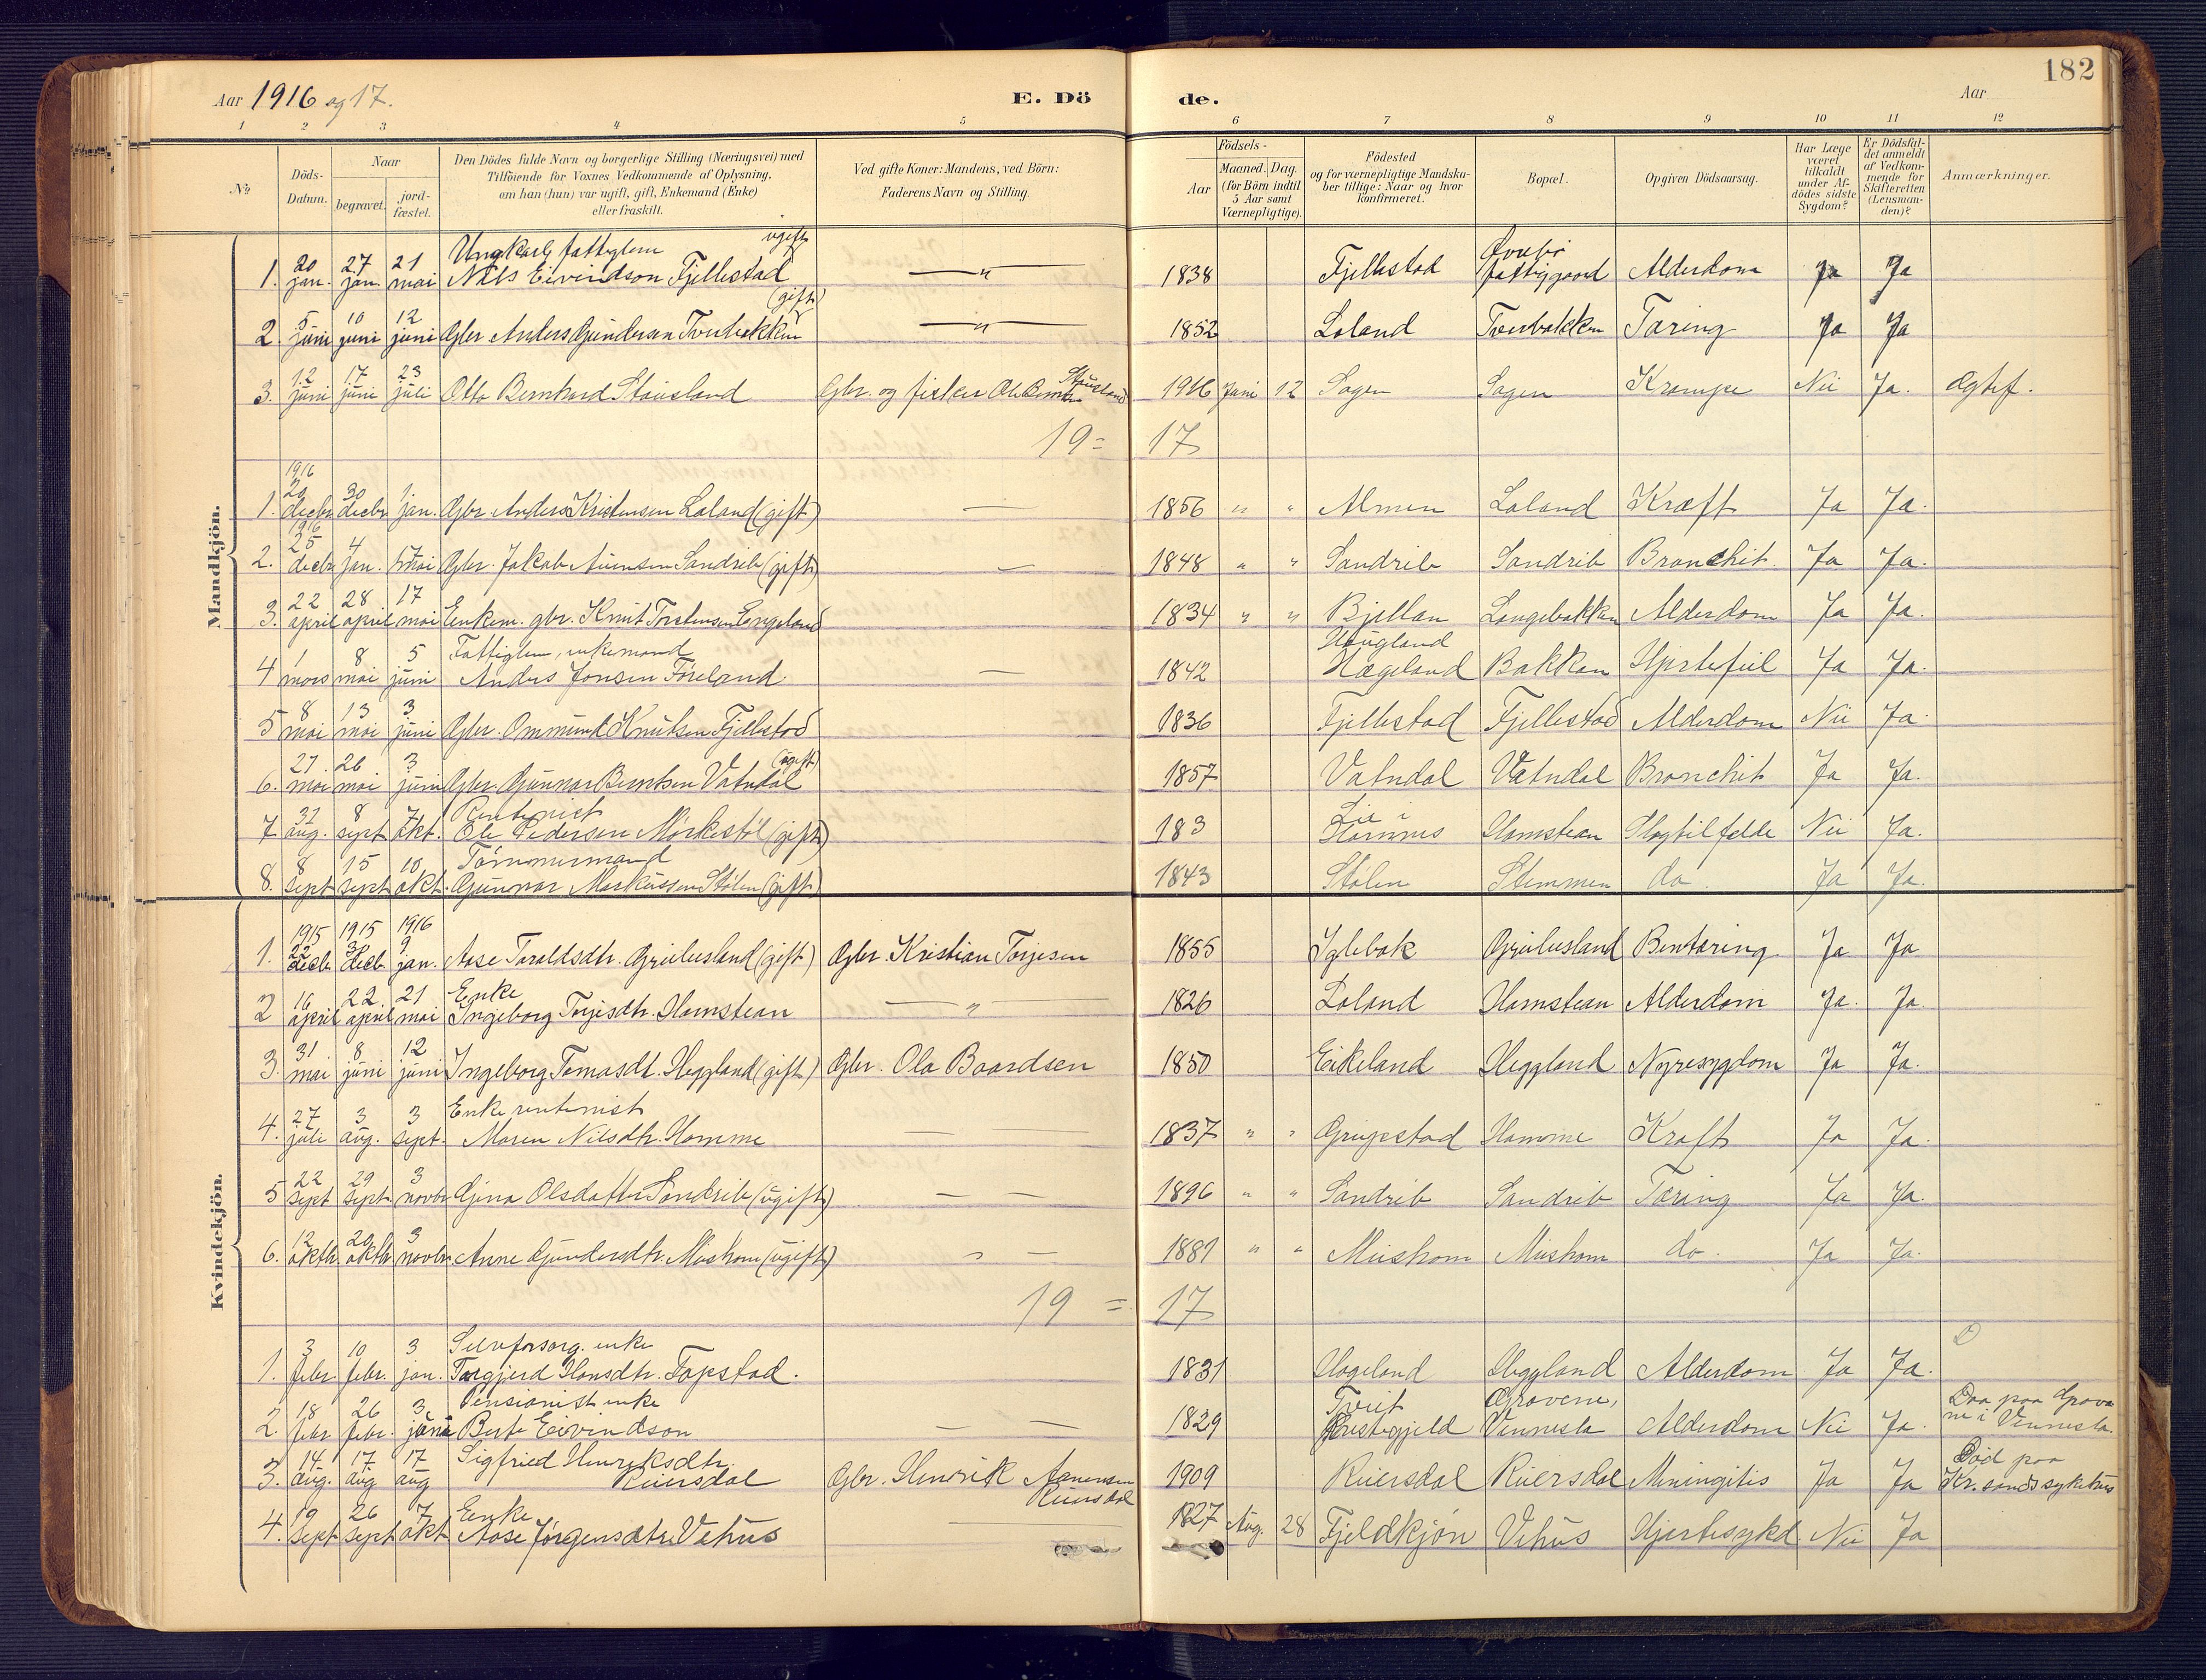 182
Aar 1916 og 17.
E. Dö de.
Aar
1 2 3 4 5 6 7 8 9 10 11 12
No
Döds-Datum.
Naar
begravet.
jord-fæstet.
Den Dödes fulde Navn og borgerlige Stilling (Næringsvei) med
Tilföiende for Voxnes Vedkommende af Oplysning,
om han (hun) var ugift, gift, Enkemand (Enke)
eller fraskilt.
Ved gifte Koner: Mandens, ved Börn:
Faderens Navn og Stilling.
Födsels-
Aar
Maaned. Dag.
(for Börn indtil
5 Aar samt
Værnepligtige).
Födested
og for værnepligtige Mandska-
ber tillige: Naar og hvor
konfirmeret.
Bopæl.
Opgiven Dödsaarsag.
Har Læge
været
tilkaldt
under Af-
dödes sidste
Sygdom?
Er Dödsfal-
det anmeldt
af Vedkom-
mende for
Skifteretten
(Lensman-
den)?
Anmærkninger.
Mandkjön.
Ungkarl, fattiglem ugift Øvrebø
1. 20 jan. 27 jan. 21 mai Nils Eivindson Fjellestad — " — 1838 Fjellestad fattiggaard Alderdom Ja Ja
(gift)
2 5 juni 10 juni 12 juni Gbr Anders Gundersen Tverbakken — " — 1852 Loland Tverbakken Tæring Ja Ja
3. 12 juni 17 juni 23 juli Otto Bernhard Stausland Gbr. og fisker Ole Stausland 1916 Juni 12 Sagen Sagen Krampe Nei Ja. Ægtef.
19 = 17
1. 1916 29 decbr 30 decbr 1. jan. Gbr. Anders Kristensen Loland (gift) — 1856 " " Almen Loland Kræft Ja Ja.
2. 1916 25 decbr 4 jan. 17 mai Gbr. Jakob Aunsen Sandrib (gift) — 1848 " " Sandrib Sandrib Bronchit. Ja Ja.
3. 22 april 28 april 17 mai Enkem. gbr. Knut Torstensen Engeland 1834 " " Bjellan Langebakken Alderdom Ja Ja.
Fattiglem, enkemand Haugland
4 1 mars 8 mai 5 juni Anders Jonsen Föreland. — 1842 Hægeland Bakkan Hjertefeil Ja Ja.
5 8 mai 13 mai 3 juni Gbr. Ommund Knutsen Fjellestad 1836 Fjellestad Fjellestad Alderdom Nei Ja.
(ugift)
6. 21. mai 26 mai 3 juni Gbr. Gunnar Berntsen Vatndal 1857 Vatndal Vatndal Bronchit Ja Ja.
Rentenist Lie i
7 31 aug. 8 sept 7 okt. Ole Pedersen Mørkestøl (gift) 183 Hornnes Homstean Slagtilfelde Nei Ja.
Tömmermand
8. 8 sept 15 sept 10 okt. Gunnar Markussen Stølen (gift) 1843 Stølen Stemmen do. Ja Ja.
Kvindekjön.
1. 1915 22 decb 1915 30 decb 1916 9 jan. Aase Taraldsdtr. Greibesland (gift) Gbr. Kristian Torjesen 1855 Iglebæk Greibesland Bentæring Ja Ja
Enke
2 16 april 22. april 21 mai Ingeborg Torjesdtr. Homstean — " — 1826 Loland Homstean Alderdom Ja. Ja.
3. 31. mai 8 juni 12 juni Ingeborg Tomasdt. Heggland (gift) Gbr. Ola Baardsen 1850 Eikeland Heggland Nyresygdom Ja Ja.
Enke rentenist
4. 27 juli 3 aug. 3 sept. Maren Nilsdtr. Homme — — 1837 " " Gripestad Homme Kræft Ja Ja.
5 22 sept 29 sept. 3 novbr Gjina Olsdatter Sandrib (ugift) — — 1896 " " Sandrib Sandrib Tæring Ja Ja.
6. 12 oktbr 20 oktbr 3 novbr. Anne Gundersdtr. Mushom (ugift) " — 1881 " " Mushom Mushom do. Ja Ja.
19 = 17
Selvforsorg. enke
1. 3 febr. 10 febr. 3 jan. Targjerd Hansdtr. Fapstad. 1831 Hageland Heggland Alderdom Ja Ja.
Pensionist enke Tveit Gravene, Døa paa Grova
2. 18 febr 26 febr. 3. juni Berte Eivindson — — 1829 Prestegjeld Vennesla Alderdom Nei Ja. ne i Vennesla
Sigfried Henriksdtr. Död paa
3. 14 aug. 17 aug 17 aug Ruersdal Gbr. Henrik Aanensen Ruersdal 1909 Ruersdal Ruersdal Miningitis Ja Ja Kr.sands sykehus
Enke
4. 19 sept 26 sept 7 okt Aase Jörgensdtr. Vehus — 1827 Aug. 28 Fjeldkjøn Vehus Hjertesykd Nei Ja